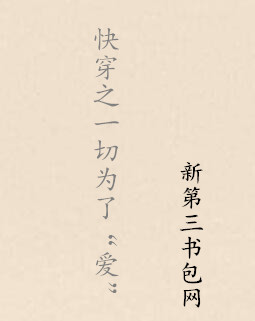 快穿之一切为了“爱”
新第三书包网